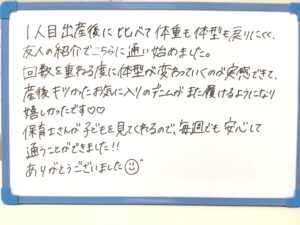 1人目出産後に比べて体重も体型も戻りにくく、
友人の紹介でこちらに通い始めました。
回数を重ねる度に体型が変わっていくのが実感できて、
産後キツかったお気に入りのデニムがまた履けるようになり
嬉しかったです♡♡
保育士さんが子どもを見てくれるので、毎週でも安心して
通うことができました!!
ありがとうございました☺